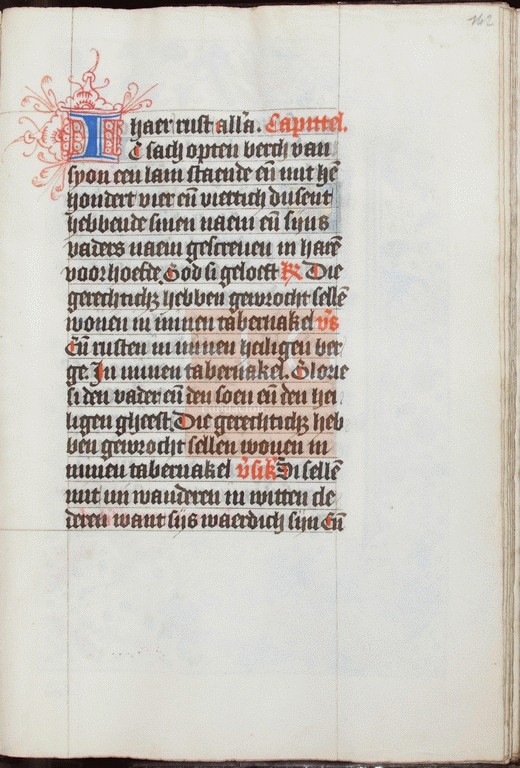 162
haer rust alla. Capittel.
Ic sach opten berch van
syon een lam staende eñ mit hē
hondert vier eñ viertich dusent
hebbende sinen naem eñ sijns
vaders naem gescreuen in harē
voorhoefde. God si geloeft R Die
gerechtichz hebben gewrocht sellē
wonen in minen tabernakel vs
Eñ rusten in minen heiligen ber
ge. In minen tabernakel. Glorie
si den vader eñ den soen eñ den hei
ligen gheest. Die gerechtichz heb
ben gewrocht sellen wonen in
minen tabernakel Di sellē
mit mi wanderen in witten cle
deren want sijs waerdich sijn Eñ